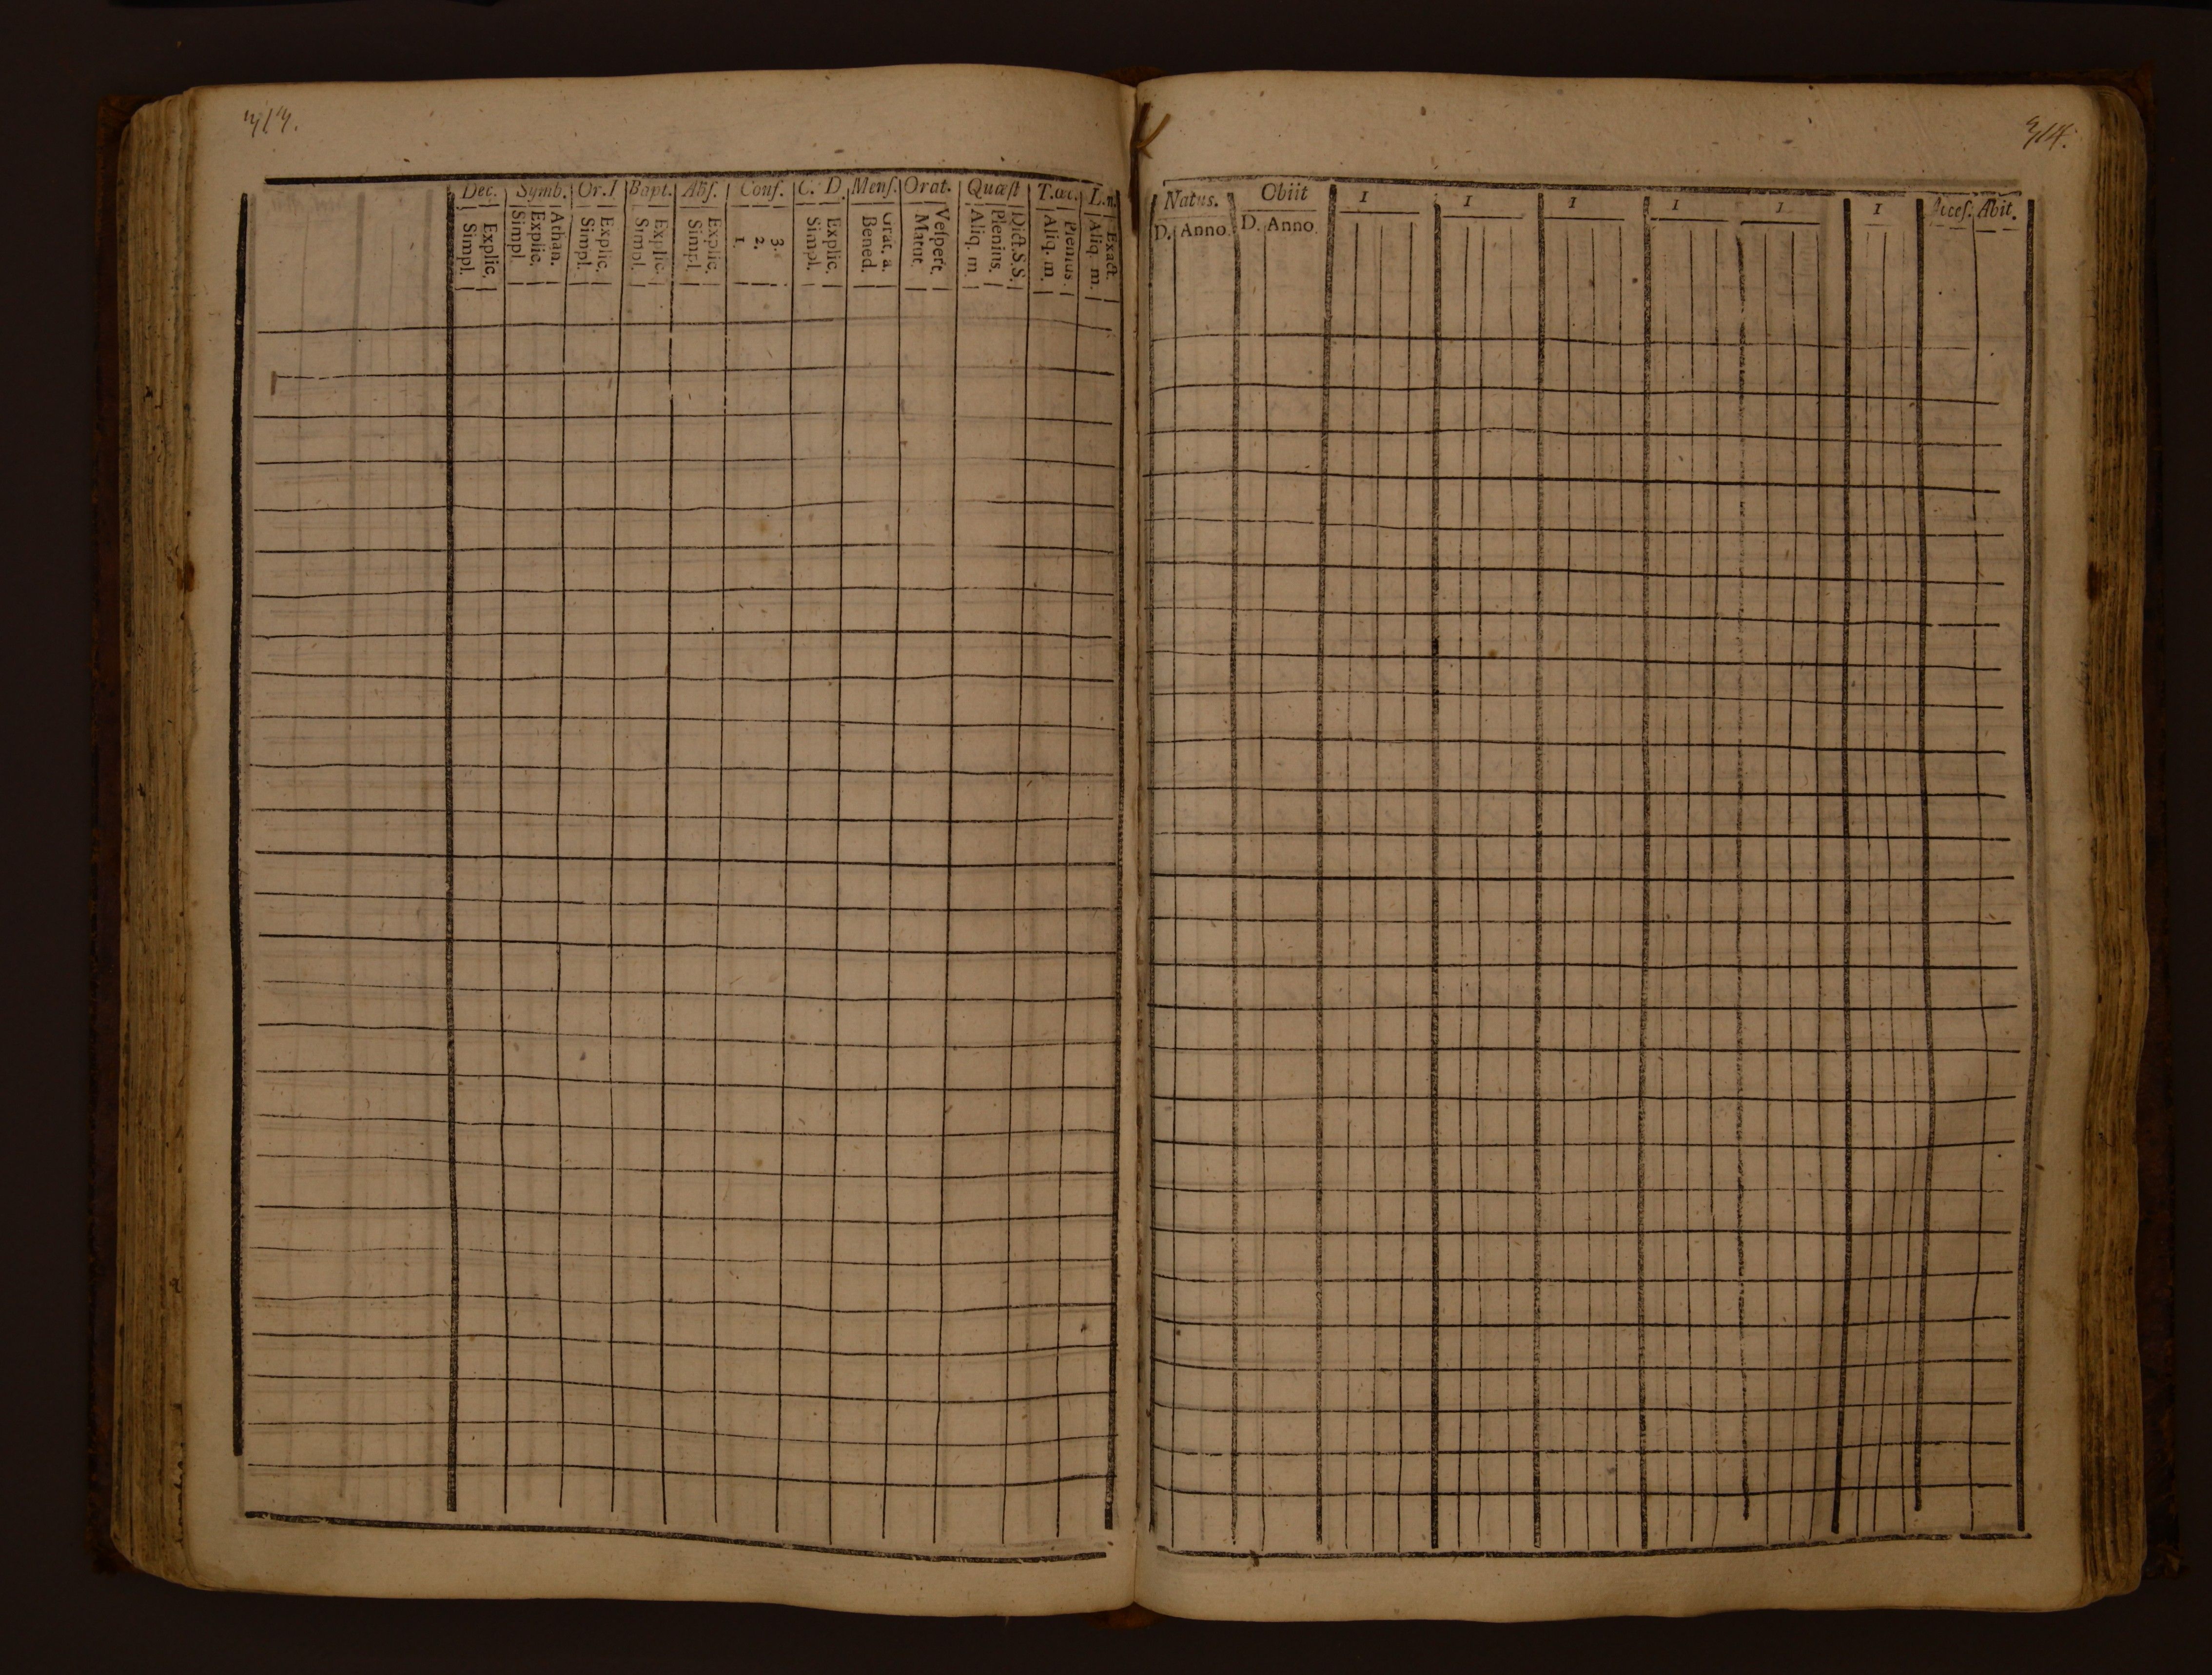 313.
Dec. Symb. Or. I Bapt. Abſ. Conf. C. D. Menſ. Orat. Quæſt T.œc. L.n.
Explic. Simpl.
Athan. Explic. Simpl.
Explic. Simpl.
Explic. Simpl.
Explic. Simpl.
3. 2. 1.
Explic. Simpl.
Grat. a. Bened.
Veſpert. Matut.
Dict.S.S. Plenius. Aliq. m.
Plenius. Aliq. m.
Exact. Aliq. m.
314.
Natus. Obiit I I I I I I Acceſ. Abit.
D. Anno. D. Anno.